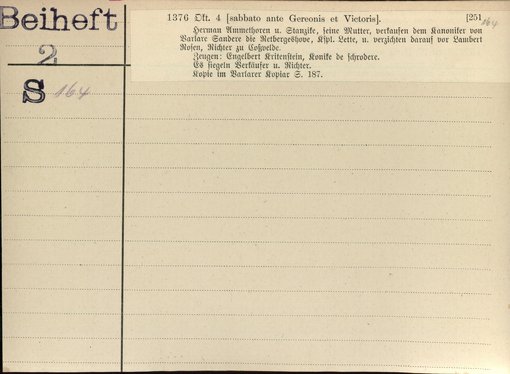 Beiheft
2
S 164
1376 Okt. 4 [sabbato ante Gereonis et Victoris]. [251
164
Herman Ammethorn u. Stanzike, seine Mutter, verkaufen dem Kanoniker von
Varlar Sandere die Retbergeshove, Kspl. Lette, u. verzichten darauf vor Lambert
Rosen, Richter zu Coßvelde.
Zeugen: Engelbert Kritenstein, Konike de schrodere.
Es siegeln Verkäufer u. Richter.
Kopie im Varlarer Kopiar S. 187.